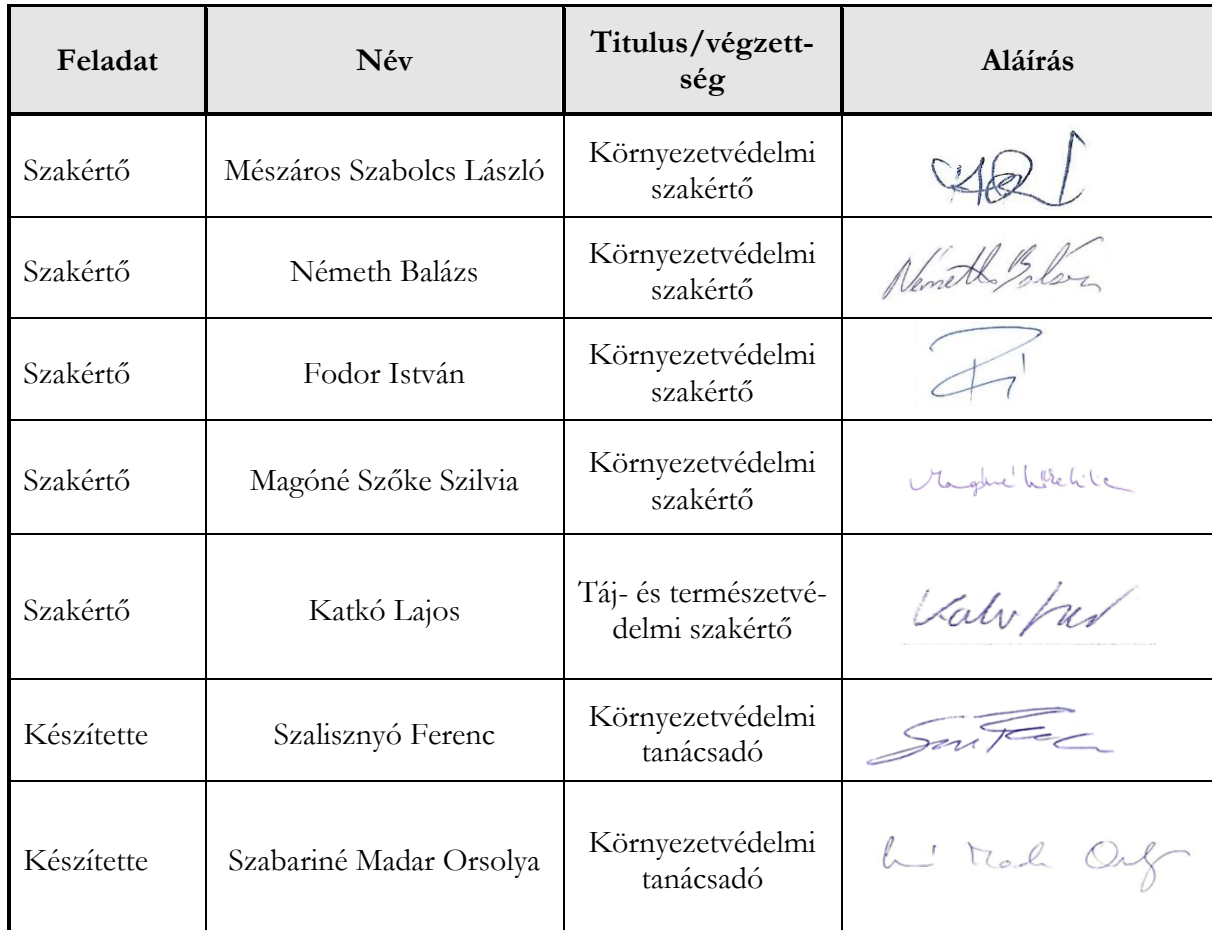 Feladat
Név
Titulus/végzett-
ség
Aláírás
Szakértő
Mészáros Szabolcs László
Környezetvédelmi
szakértő
Szakértő
Németh Balázs
Környezetvédelmi
szakértő
Németh Balázs
Szakértő
Fodor István
Környezetvédelmi
szakértő
Szakértő
Magóné Szőke Szilvia
Környezetvédelmi
szakértő
Szakértő
Katkó Lajos
Táj- és természetvé-
delmi szakértő
Készítette
Szalisznyó Ferenc
Környezetvédelmi
tanácsadó
Készítette
Szabariné Madar Orsolya
Környezetvédelmi
tanácsadó